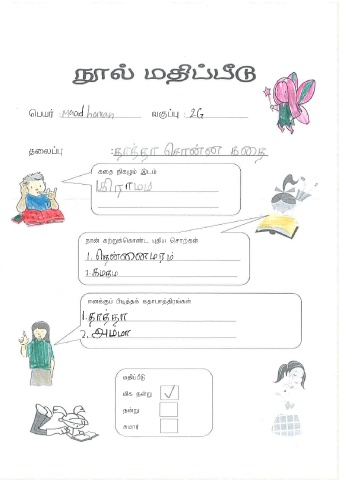 நூல் மதிப்பீடு
பெயர் : Maadhanan வகுப்பு : 2G
தலைப்பு : தாத்தா சொன்ன கதை
கதை நிகழும் இடம்
கிராமம்
நான் கற்றுக்கொண்ட புதிய சொற்கள்
1. தென்னைமரம்
2.
எனக்குப் பிடித்தக் கதாபாத்திரங்கள்
1. தாத்தா
2. அம்மா
மதிப்பீடு
மிக நன்று ✓
நன்று
சுமார்